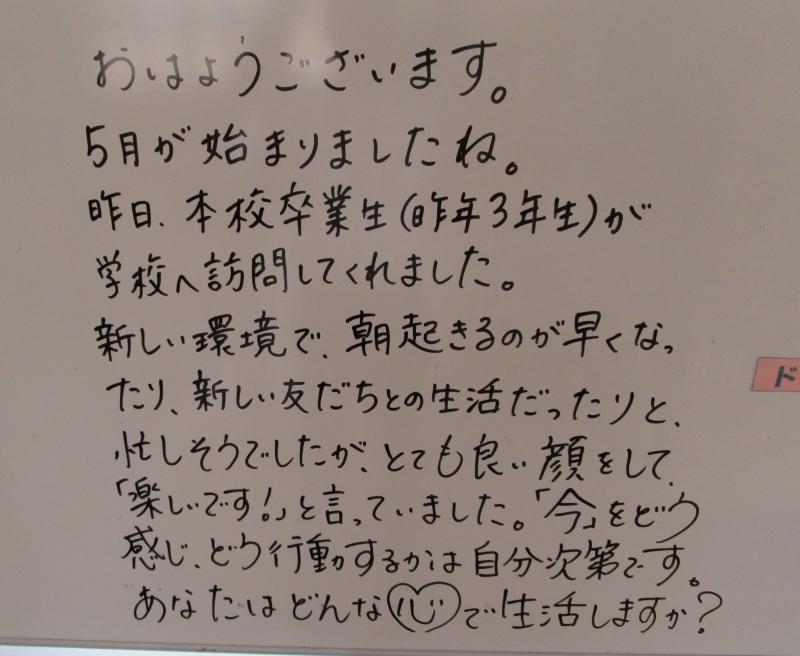 おはようございます。
5月が始まりましたね。
昨日、本校卒業生(昨年3年生)が
学校へ訪問してくれました。
新しい環境で、朝起きるのが早くなっ
たり、新しい友だちとの生活だったりと、
忙しそうでしたが、とても良い顔をして、
「楽しいです!」と言っていました。「今」をどう
感じ、どう行動するかは自分次第です。
あなたはどんな心で生活しますか?
ド